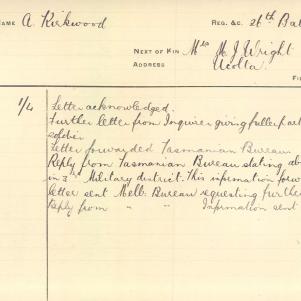 NAME A. Kirkwood REG. &C. 26th Bat
NEXT OF KIN Mrs M. J. Wright
ADDRESS
Fi
1/4 Letter acknowledged.
Further letter from Inquirer giving fuller part
soldier
Letter forwarded Tasmanian Bureau
Reply from Tasmanian Bureau stating ab
in 3rd Military district. This information forw
letter sent Melb. Bureau requesting furthe
Reply from " " Information sent